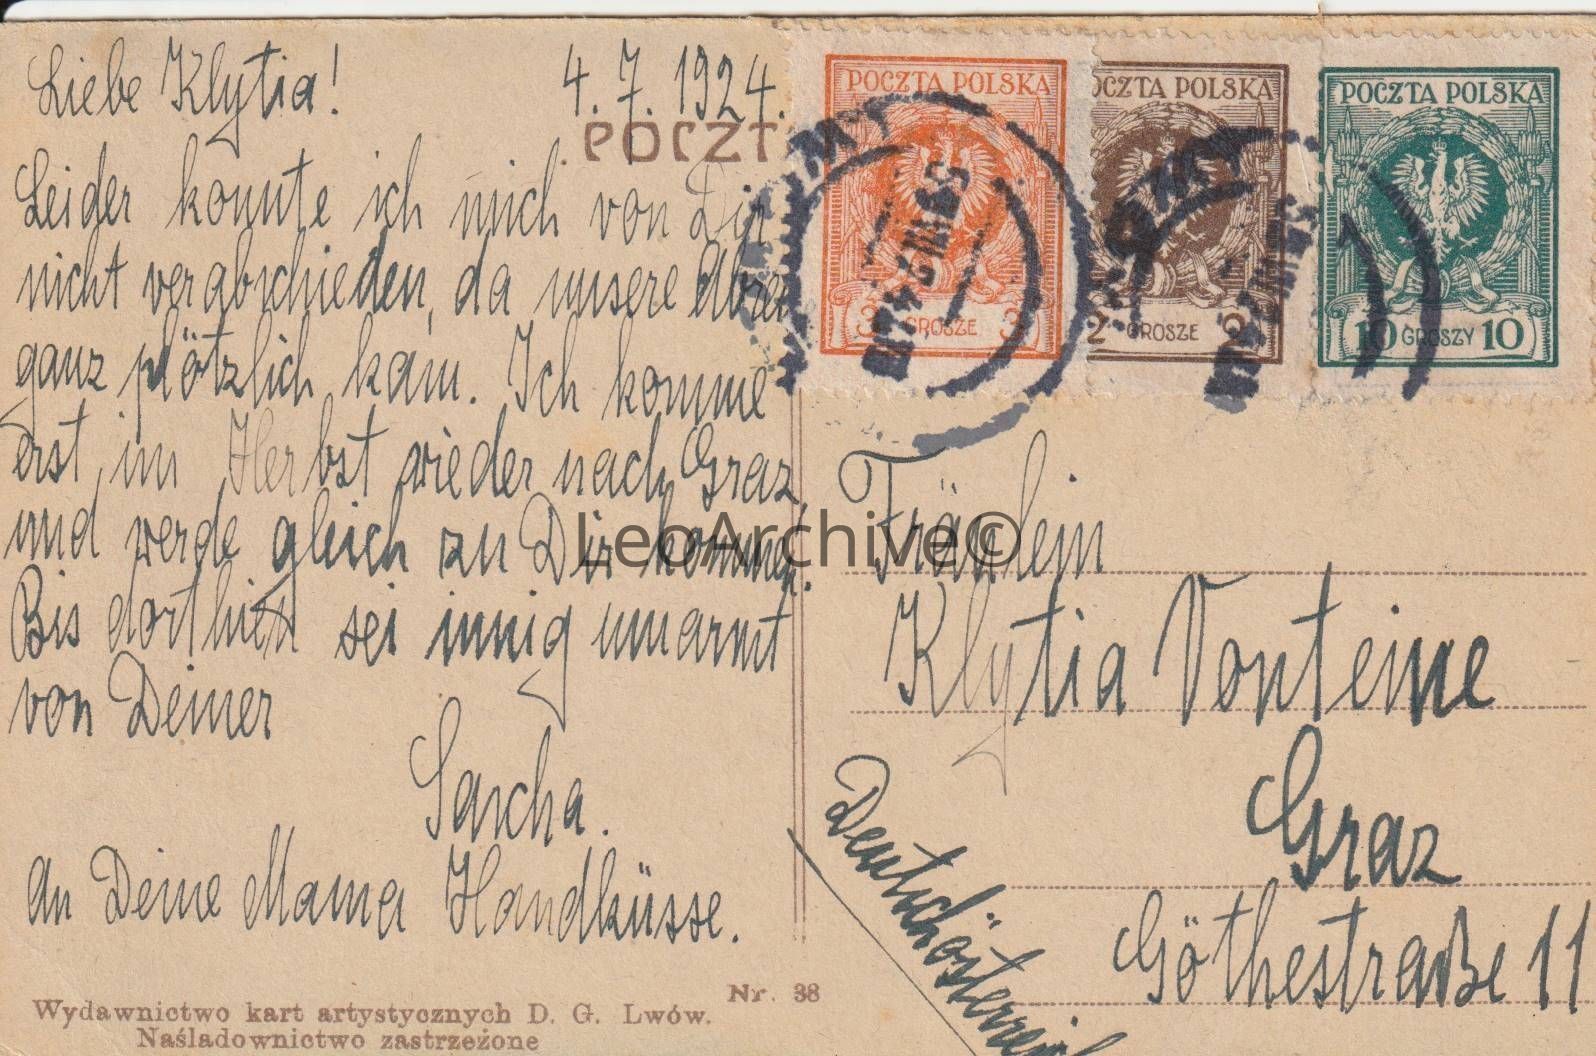 Liebe Klytia! 4.7.1924.
Leider konnte ich mich von Dir
nicht verabschieden, da unsere Abrei
ganz plötzlich kam. Ich komme
erst im Herbst wieder nach Graz
und werde gleich zu Dir kommen.
Bis dorthien sei innig umarmt
von Deiner
Sascha.
An Deine Mama Handküsse.
POCZT
Nr. 38
Wydawnictwo kart artystycznych D. G. Lwów.
Naśladownictwo zastrzeżone
POCZTA POLSKA
3 GROSZE 3
OCZTA POLSKA
2 GROSZE 2
POCZTA POLSKA
10 GROSZY 10
LeoArchive©
Fräulein
Klytia Vonteine
Graz
Göthestraße 11
Deutschösterreich